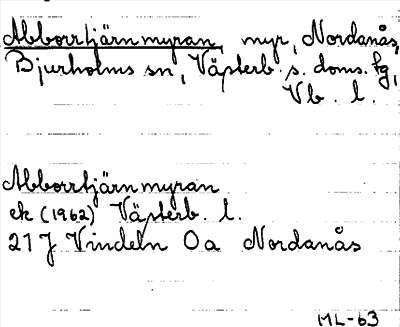 Abborrtjärnmyran, myr, Nordanås,
Bjurholms sn, Västerb. s. doms. fg,
Vb. l.
Abborrtjärnmyran
ek (1962) Västerb. l.
21 J Vindeln 0a Nordanås
ML-63